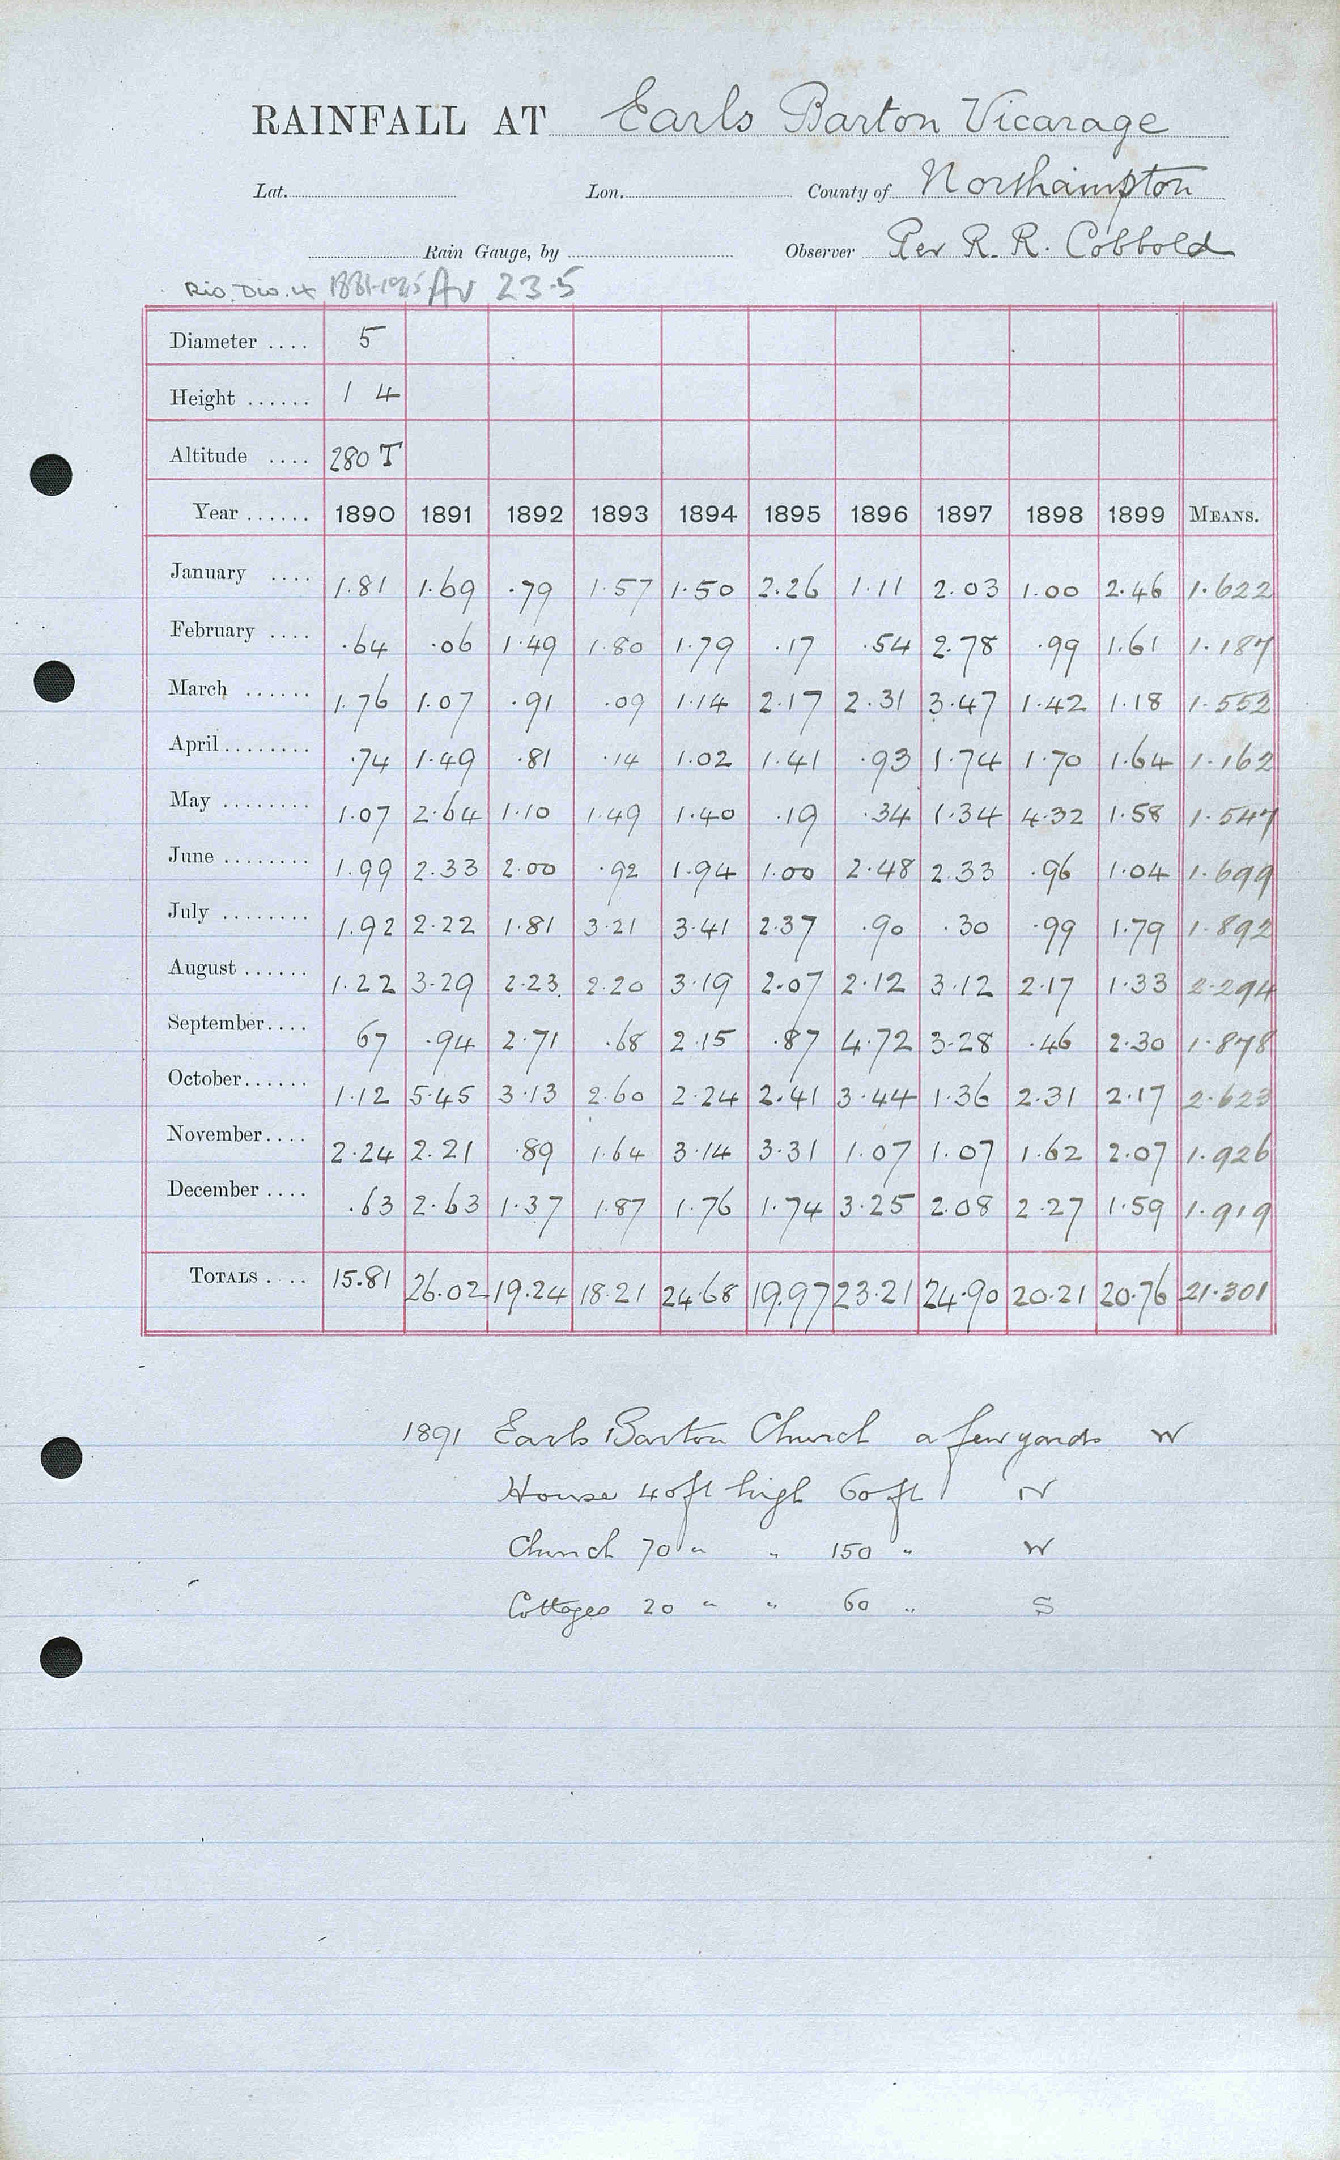 RAINFALL AT Earls Barton Vicarage
Lat. Lon. County of Northampton
Rain Gauge, by Observer Rev R. R. Cobbold
Riv. Div. 4 1881-1915 Av 23.5
Diameter .... 5
Height ...... 1 4
Altitude .... 280 T
Year ...... 1890 1891 1892 1893 1894 1895 1896 1897 1898 1899 MEANS.
January .... 1.81 1.69 .79 1.57 1.50 2.26 1.11 2.03 1.00 2.46 1.622
February .... .64 .06 1.49 1.80 1.79 .17 .54 2.78 .99 1.61 1.187
March ...... 1.76 1.07 .91 .09 1.14 2.17 2.31 3.47 1.42 1.18 1.552
April ........ .74 1.49 .81 .14 1.02 1.41 .93 1.74 1.70 1.64 1.162
May ........ 1.07 2.64 1.10 1.49 1.40 .19 .34 1.34 4.32 1.58 1.547
June ........ 1.99 2.33 2.00 .92 1.94 1.00 2.48 2.33 .96 1.04 1.699
July ........ 1.92 2.22 1.81 3.21 3.41 2.37 .90 .30 .99 1.79 1.892
August ...... 1.22 3.29 2.23 2.20 3.19 2.07 2.12 3.12 2.17 1.33 2.294
September .... 67 .94 2.71 .68 2.15 .87 4.72 3.28 .46 2.30 1.878
October ...... 1.12 5.45 3.13 2.60 2.24 2.41 3.44 1.36 2.31 2.17 2.623
November .... 2.24 2.21 .89 1.64 3.14 3.31 1.07 1.07 1.62 2.07 1.926
December .... .63 2.63 1.37 1.87 1.76 1.74 3.25 2.08 2.27 1.59 1.919
TOTALS .... 15.81 26.02 19.24 18.21 24.68 19.97 23.21 24.90 20.21 20.76 21.301
1891 Earls Barton Church a few yards W
House 40ft high 60 ft N
Church 70 " " 150 " W
Cottages 20 " " 60 " S